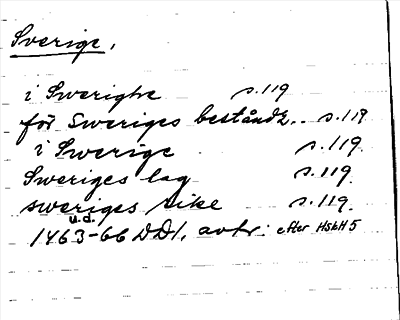 Sverige,
i Swerighe s. 119
för Sweriges bestånd s. 119
i Swerige s. 119.
Sweriges lag s. 119.
sweriges rike s. 119.
u.d.
1463-66 DD1, avtr. efter HSkH 5